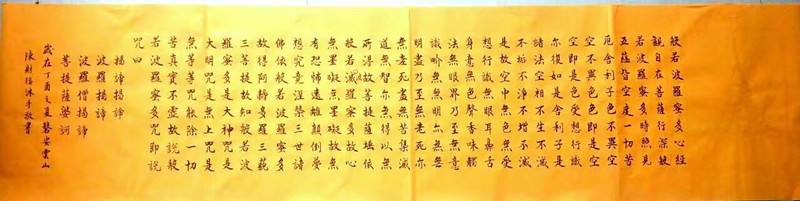 般若波羅密多心經
觀自在菩薩行深般
若波羅密多時照見
五蘊皆空度一切苦
厄舍利子色不異空
空不異色色即是空
空即是色受想行識
亦復如是舍利子是
諸法空相不生不滅
不垢不淨不增不減
是故空中無色無受
想行識無眼耳鼻舌
身意無色聲香味觸
法無眼界乃至無意
識界無無明亦無無
明盡乃至無老死亦
無老死盡無苦集滅
道無智亦無得以無
所得故菩提薩埵依
般若波羅密多故心
無罣礙無罣礙故無
有恐怖遠離顛倒夢
想究竟涅槃三世諸
佛依般若波羅密多
故得阿耨多羅三藐
三菩提故知般若波
羅密多是大神咒是
大明咒是無上咒是
無等等咒能除一切
苦真實不虛故說般
若波羅密多咒即說
咒曰
揭諦揭諦
波羅揭諦
波羅僧揭諦
菩提薩婆訶
歲在丁酉之夏安雲山
陳財福沐手敬書